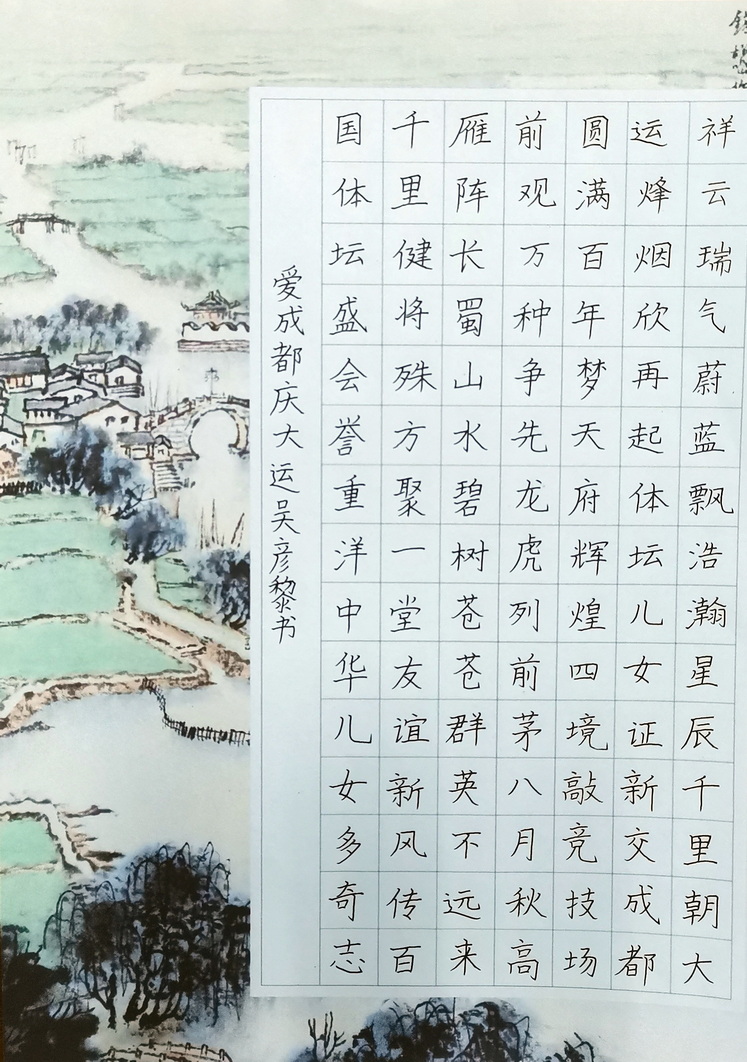 祥云瑞气蔚蓝飘浩瀚星辰千里朝大
运烽烟欣再起体坛儿女证新交成都
圆满百年梦天府辉煌四境敲竞技场
前观万种争先龙虎列前茅八月秋高
雁阵长蜀山水碧树苍苍群英不远来
千里健将殊方聚一堂友谊新风传百
国体坛盛会誉重洋中华儿女多奇志
爱成都庆大运吴彦黎书